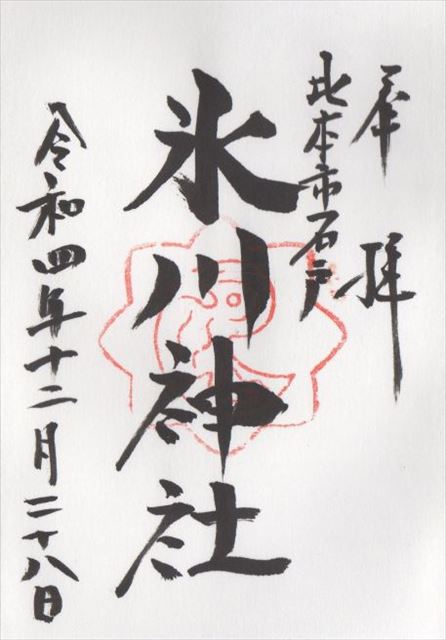 奉拝
北本市石戸
氷川神社
令和四年十二月二十八日